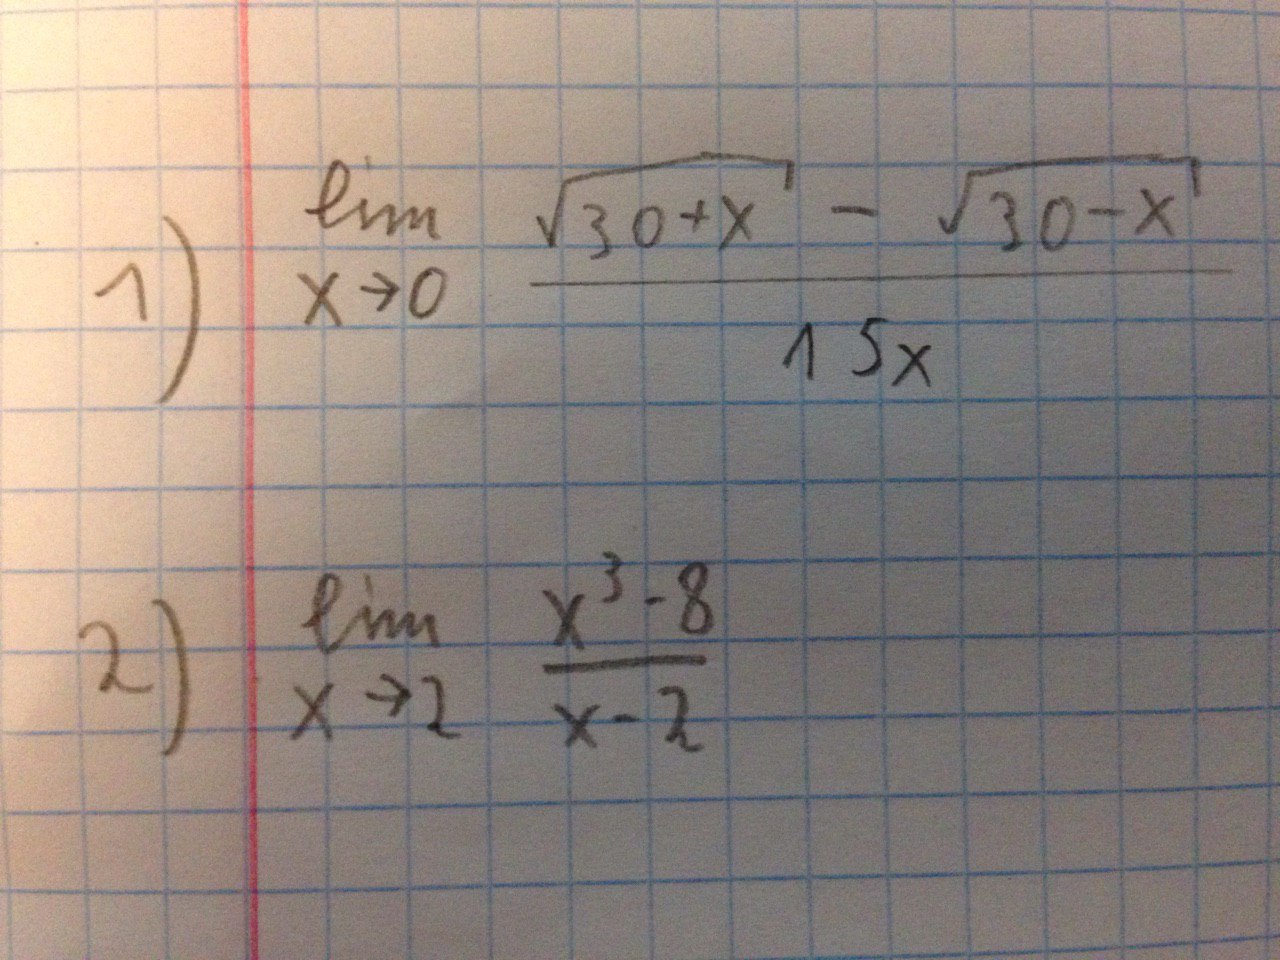 1) lim x→0 (√(30+x) - √(30-x)) / 15x
2) lim x→2 (x³-8) / (x-2)